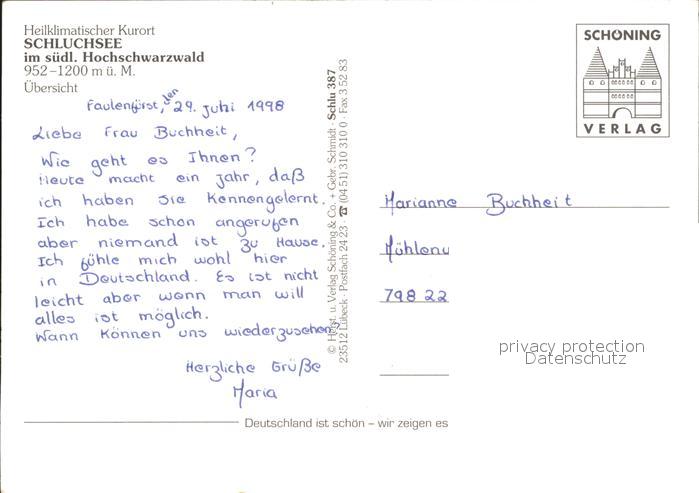 Heilklimatischer Kurort
SCHLUCHSEE
im südl. Hochschwarzwald
952–1200 m ü. M.
Übersicht
Faulenfürst, den 29. Juni 1998
Liebe Frau Buchheit,
Wie geht es Ihnen?
Heute macht ein Jahr, daß
ich haben Sie Kennengelernt.
Ich habe schon angerufen
aber niemand ist zu Hause.
Ich fühle mich wohl hier
in Deutschland. Es ist nicht
leicht aber wenn man will
alles ist möglich.
Wann können uns wiederzusehen?
Herzliche Grüße
Maria
© Herst. u. Verlag Schöning & Co. + Gebr. Schmidt · Schlu 387
23512 Lübeck · Postfach 24 23 · ☎ (04 51) 310 310 0 · Fax 3 52 83
SCHÖNING
VERLAG
Marianne Buchheit
Mühlenw
798 22
privacy protection
Datenschutz
Deutschland ist schön – wir zeigen es